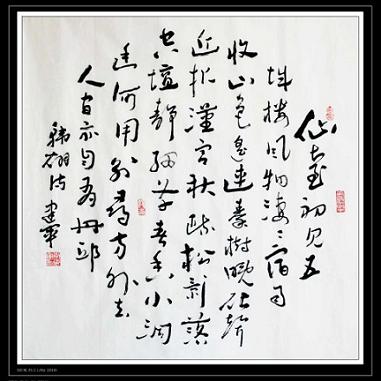 仙臺初见五
城楼风物凄凄宿雨
收山色遥连秦树晚砧聲
近报漢宫秋疏松影落
空壇静细草春香小洞
幽何用别尋方外去
人间亦自有丹邱
韩翃诗 建華